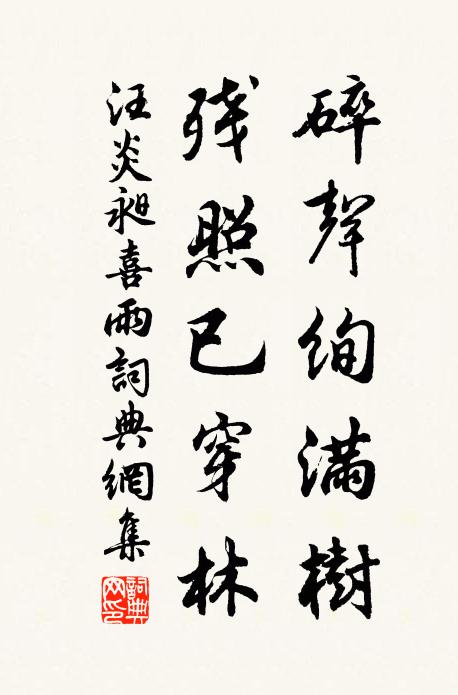 碎聲絢滿樹
残照已穿林
汪炎昶喜雨詞典網集
詞典网印